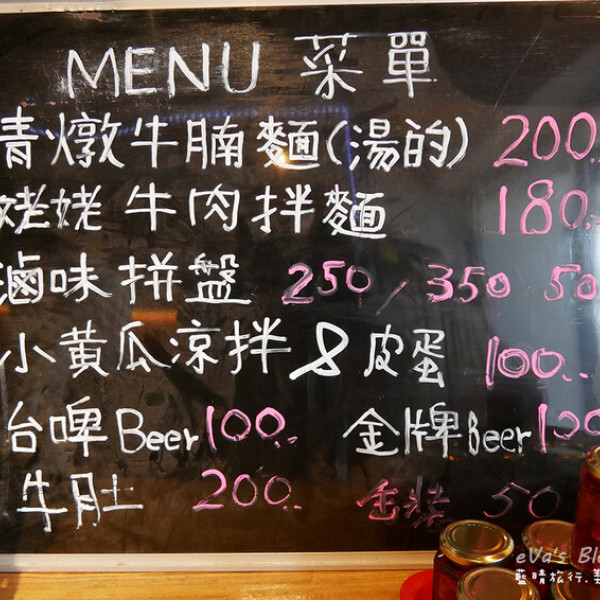 MENU 菜單
清燉牛腩麵(湯的) 200..
姥姥牛肉拌麵 180..
滷味拼盤 250, 350 50
小黃瓜涼拌 & 皮蛋 100..
台啤Beer 100.. 金牌Beer 100
牛肚 200.. 50
eVa's Blo
藍晴旅行.美